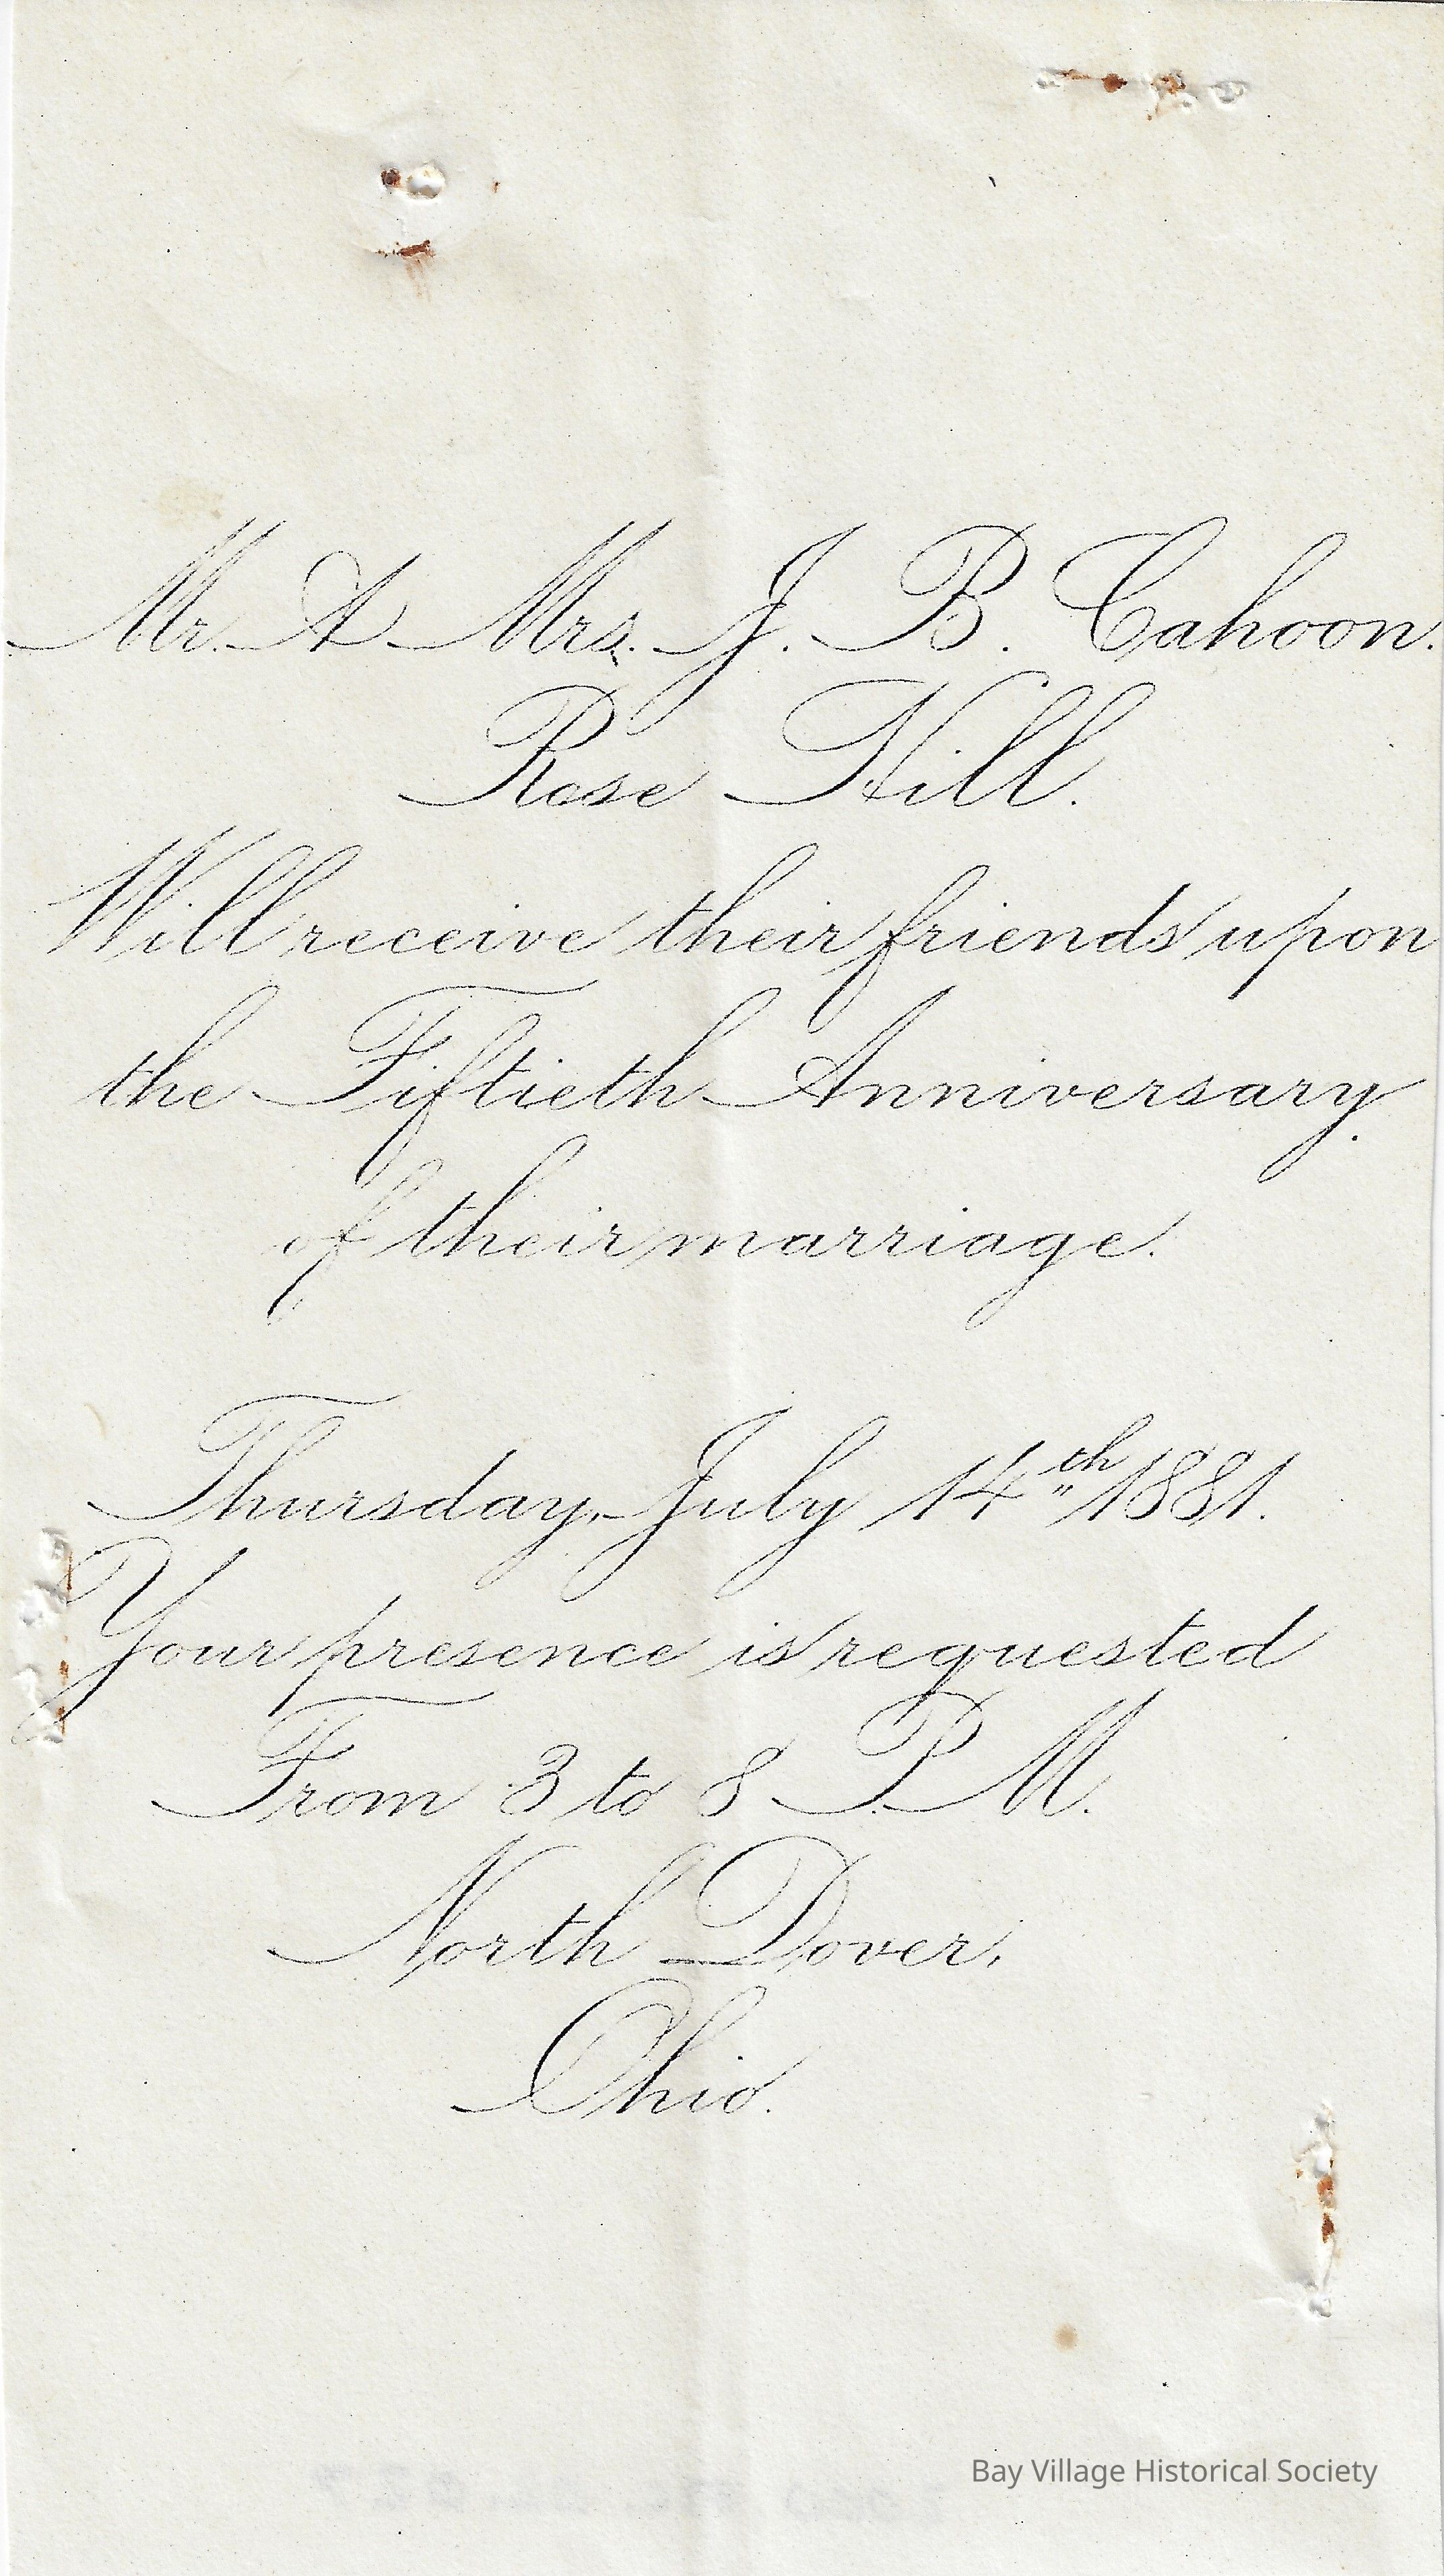 Mr. & Mrs. J. B. Cahoon.
Rose Hill.
Will receive their friends upon
the Fiftieth Anniversary.
of their marriage.
Thursday, July 14th 1881.
Your presence is requested
From 3 to 8 P. M.
North Dover,
Ohio.
Bay Village Historical Society